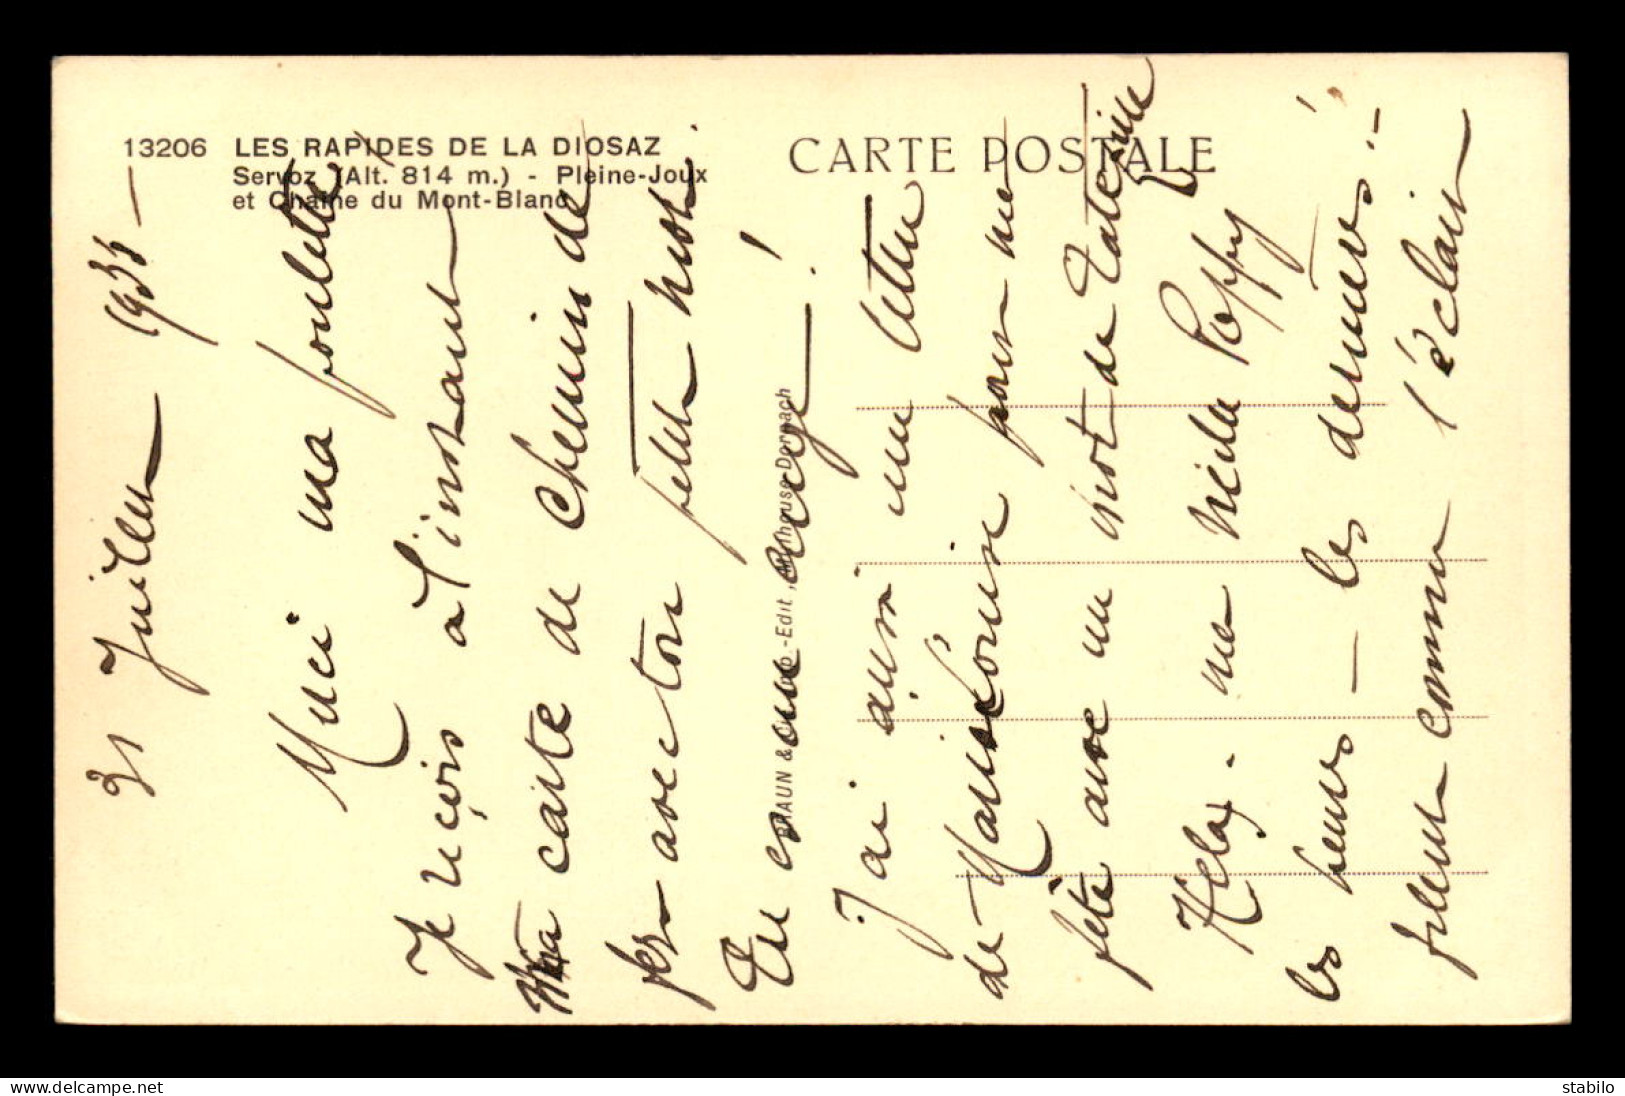 13206 LES RAPIDES DE LA DIOSAZ
Servoz (Alt. 814 m.) - Pleine-Joux
et Chaîne du Mont-Blanc
CARTE POSTALE
BRAUN & Cie -Edit., Mulhouse-Dornach
31 Juillet 1935 -
Merci ma poulette
Je reçois à l'instant
ma carte de chemin de
fer avec ton petit mot.
Tu es une ange !
J'ai aussi une lettre
de pour me
fête avec un mot de
- me Poppy
les heures - les dernières -
filent comme l'éclair
delcampe.net
stabilo